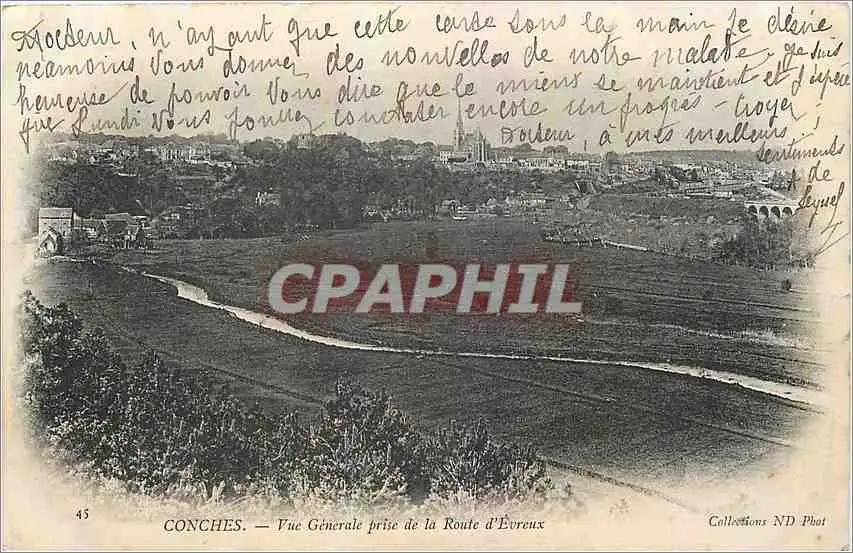 Docteur, n'ayant que cette carte sous la main je désire
néamoins vous donner des nouvelles de notre malade. je suis
heureuse de pouvoir vous dire que le mieux se maintient et j'espère
que Lundi vous pourrez constater encore un progrès - Croyez
Docteur, à mes meilleurs
sentiments
de
CPAPHIL
45
CONCHES. — Vue Générale prise de la Route d'Évreux
Collections ND Phot